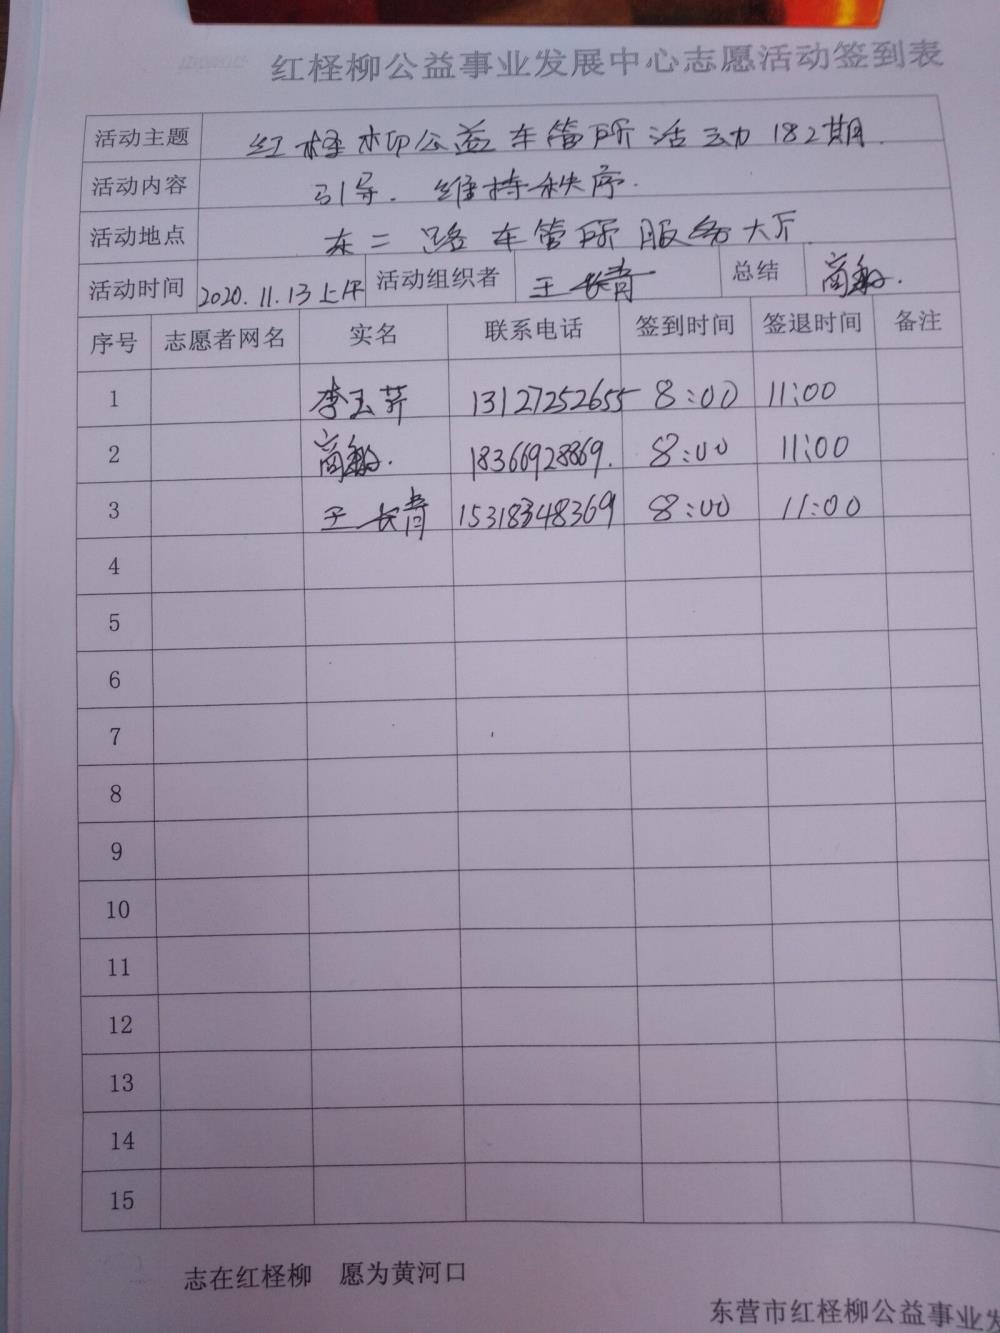 红柽柳公益事业发展中心志愿活动签到表
活动主题 红柽柳公益车管所活动182期.
活动内容 引导. 维持秩序.
活动地点 东二路车管所服务大厅.
活动时间 2020.11.13上午 活动组织者 王长青 总结 商敏.
序号 志愿者网名 实名 联系电话 签到时间 签退时间 备注
1 李玉芹 13127252655 8:00 11:00
2 商敏. 18366928869. 8:00 11:00
3 王长青 15318348369 8:00 11:00
4
5
6
7
8
9
10
11
12
13
14
15
志在红柽柳 愿为黄河口
东营市红柽柳公益事业发